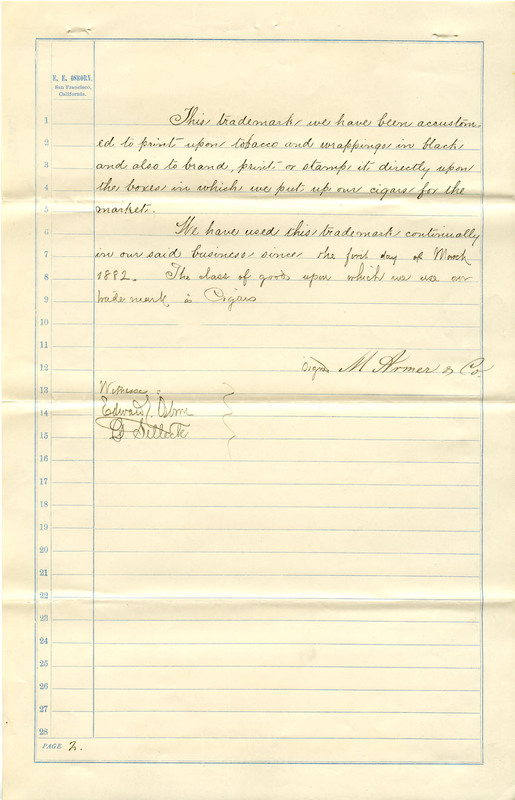 E. E. OSBORN,
San Francisco,
California.
1 This trademark we have been accustom-
2 ed to print upon tobacco and wrappings in black
3 and also to brand, print or stamp it directly upon
4 the boxes in which we put up our cigars for the
5 market.
6 We have used this trademark continually
7 in our said business since the first day of March
8 1882. The class of goods upon which we use our
9 trade mark is Cigars
10
11
12 Signed M Armer & Co.
13 Witnesses
14 Edward Osborn
15
16
17
18
19
20
21
22
23
24
25
26
27
28
PAGE 2.